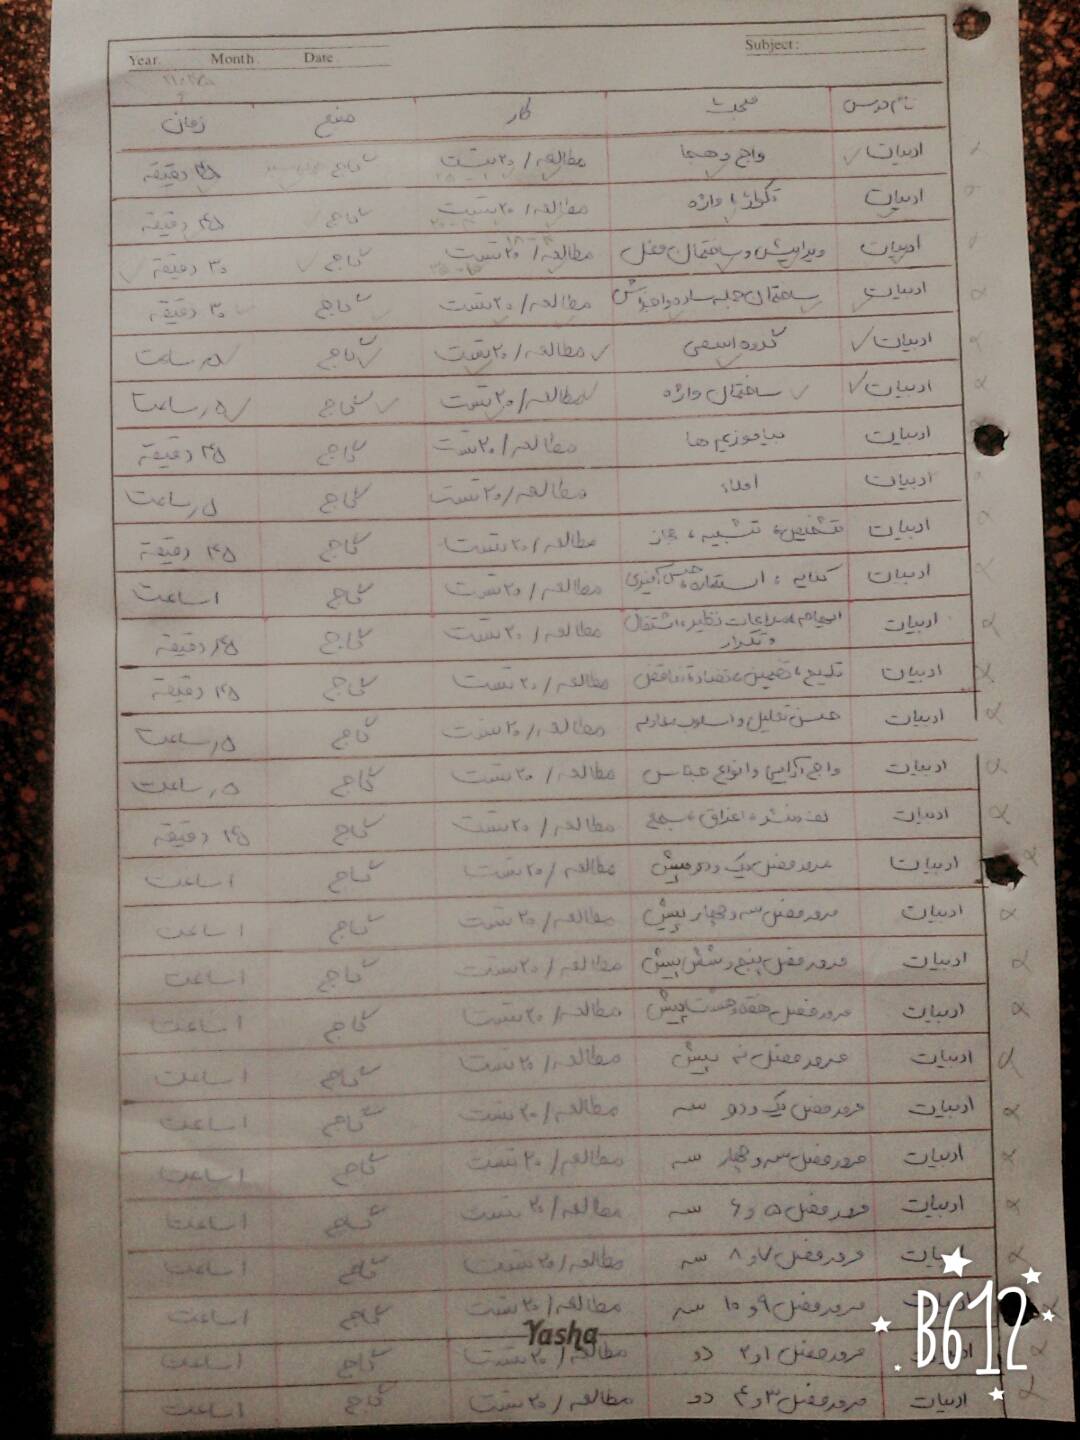 Year. Month. Date Subject:
نام درس مبحث کار منبع زمان
ادبیات واج و هجا مطالعه / ۲۰ تست گاج ۴۵ دقیقه
ادبیات تکواژ، واژه مطالعه / ۲۰ تست گاج ۴۵ دقیقه
ادبیات ویرایش و ساختمان فعل مطالعه / ۲۰ تست گاج ۳۰ دقیقه
ادبیات ساختمان جمله ساده و اجزایش مطالعه / ۲۰ تست گاج ۳۰ دقیقه
ادبیات گروه اسمی مطالعه / ۲۰ تست گاج ۵ر ساعت
ادبیات ساختمان واژه مطالعه / ۲۰ تست گاج ۵ر ساعت
ادبیات بیاموزیم ها مطالعه / ۲۰ تست گاج ۴۵ دقیقه
ادبیات املاء مطالعه / ۲۰ تست گاج ۵ر ساعت
ادبیات تشخیص، تشبیه، مجاز مطالعه / ۲۰ تست گاج ۴۵ دقیقه
ادبیات کنایه، استعاره، حس آمیزی مطالعه / ۲۰ تست گاج ۱ ساعت
ادبیات ایهام، مراعات نظیر، اشتقاق مطالعه / ۲۰ تست گاج ۴۵ دقیقه
و تکرار
ادبیات تلمیح، تضمین، تضاد، تناقض مطالعه / ۲۰ تست گاج ۴۵ دقیقه
ادبیات حسن تعلیل و اسلوب معادله مطالعه / ۲۰ تست گاج ۵ر ساعت
ادبیات واج آرایی و انواع جناس مطالعه / ۲۰ تست گاج ۵ر ساعت
ادبیات لف و نشر، اغراق، سجع مطالعه / ۲۰ تست گاج ۴۵ دقیقه
ادبیات مرور فصل یک و دو پیش مطالعه / ۲۰ تست گاج ۱ ساعت
ادبیات مرور فصل سه و چهار پیش مطالعه / ۲۰ تست گاج ۱ ساعت
ادبیات مرور فصل پنج و شش پیش مطالعه / ۲۰ تست گاج ۱ ساعت
ادبیات مرور فصل هفت و هشت پیش مطالعه / ۲۰ تست گاج ۱ ساعت
ادبیات مرور فصل نه پیش مطالعه / ۲۰ تست گاج ۱ ساعت
ادبیات مرور فصل یک و دو سه مطالعه / ۲۰ تست گاج ۱ ساعت
ادبیات مرور فصل سه و چهار سه مطالعه / ۲۰ تست گاج ۱ ساعت
ادبیات مرور فصل ۵ و ۶ سه مطالعه / ۲۰ تست گاج ۱ ساعت
ادبیات مرور فصل ۷ و ۸ سه مطالعه / ۲۰ تست گاج ۱ ساعت
ادبیات مرور فصل ۹ و ۱۰ سه مطالعه / ۲۰ تست گاج ۱ ساعت
Yasha
B612
ادبیات مرور فصل ۱ و ۲ دو مطالعه / ۲۰ تست گاج ۱ ساعت
ادبیات مرور فصل ۳ و ۴ دو مطالعه / ۲۰ تست گاج ۱ ساعت